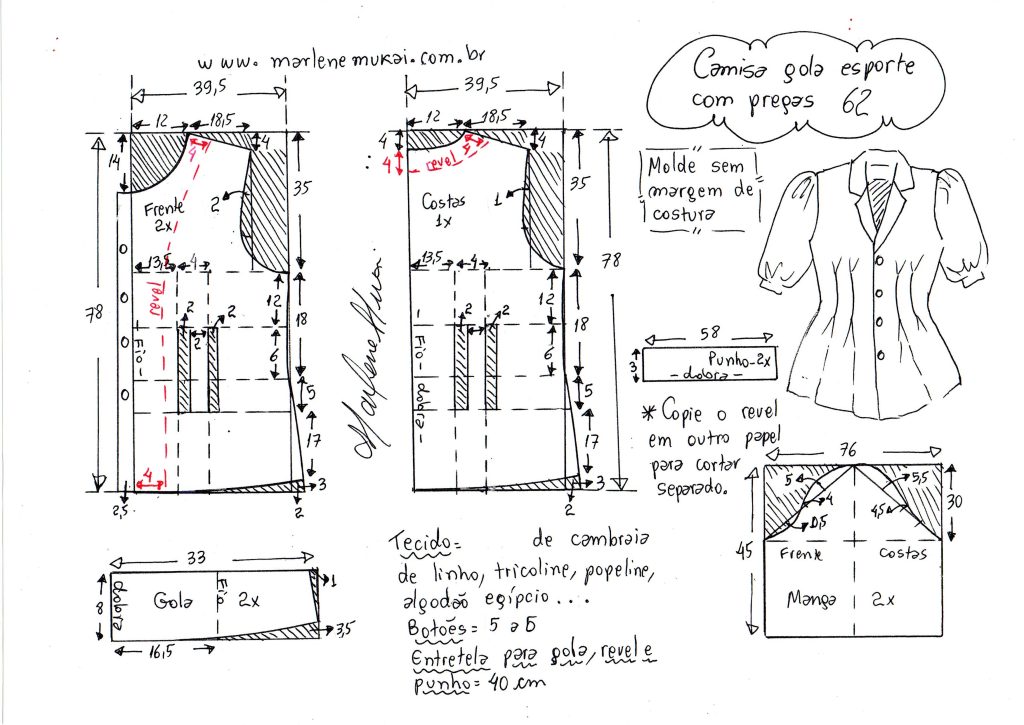 www.marlenemukai.com.br
Camisa gola esporte
com pregas 62
39,5
12
18,5
4
14
4
35
Frente
2x
2
13,5
4
revel
78
12
18
2
2
2
6
Fio
5
17
4
3
2,5
2
39,5
12
18,5
4
4
4
revel
5
35
Costas
1x
1
13,5
4
78
12
18
2
2
2
6
- Fio - dobra -
5
17
3
2
Marlene Mukai
Molde sem
margem de
costura
58
3
Punho-2x
- dobra -
* Copie o revel
em outro papel
para cortar
separado.
76
5
5,5
4
4,5
0,5
30
45
Frente
Costas
Manga 2x
33
1
8
dobra
Gola
Fio
2x
3,5
16,5
Tecido= de cambraia
de linho, tricoline, popeline,
algodão egípcio...
Botões= 5 a 6
Entretela para gola, revel e
punho= 40 cm